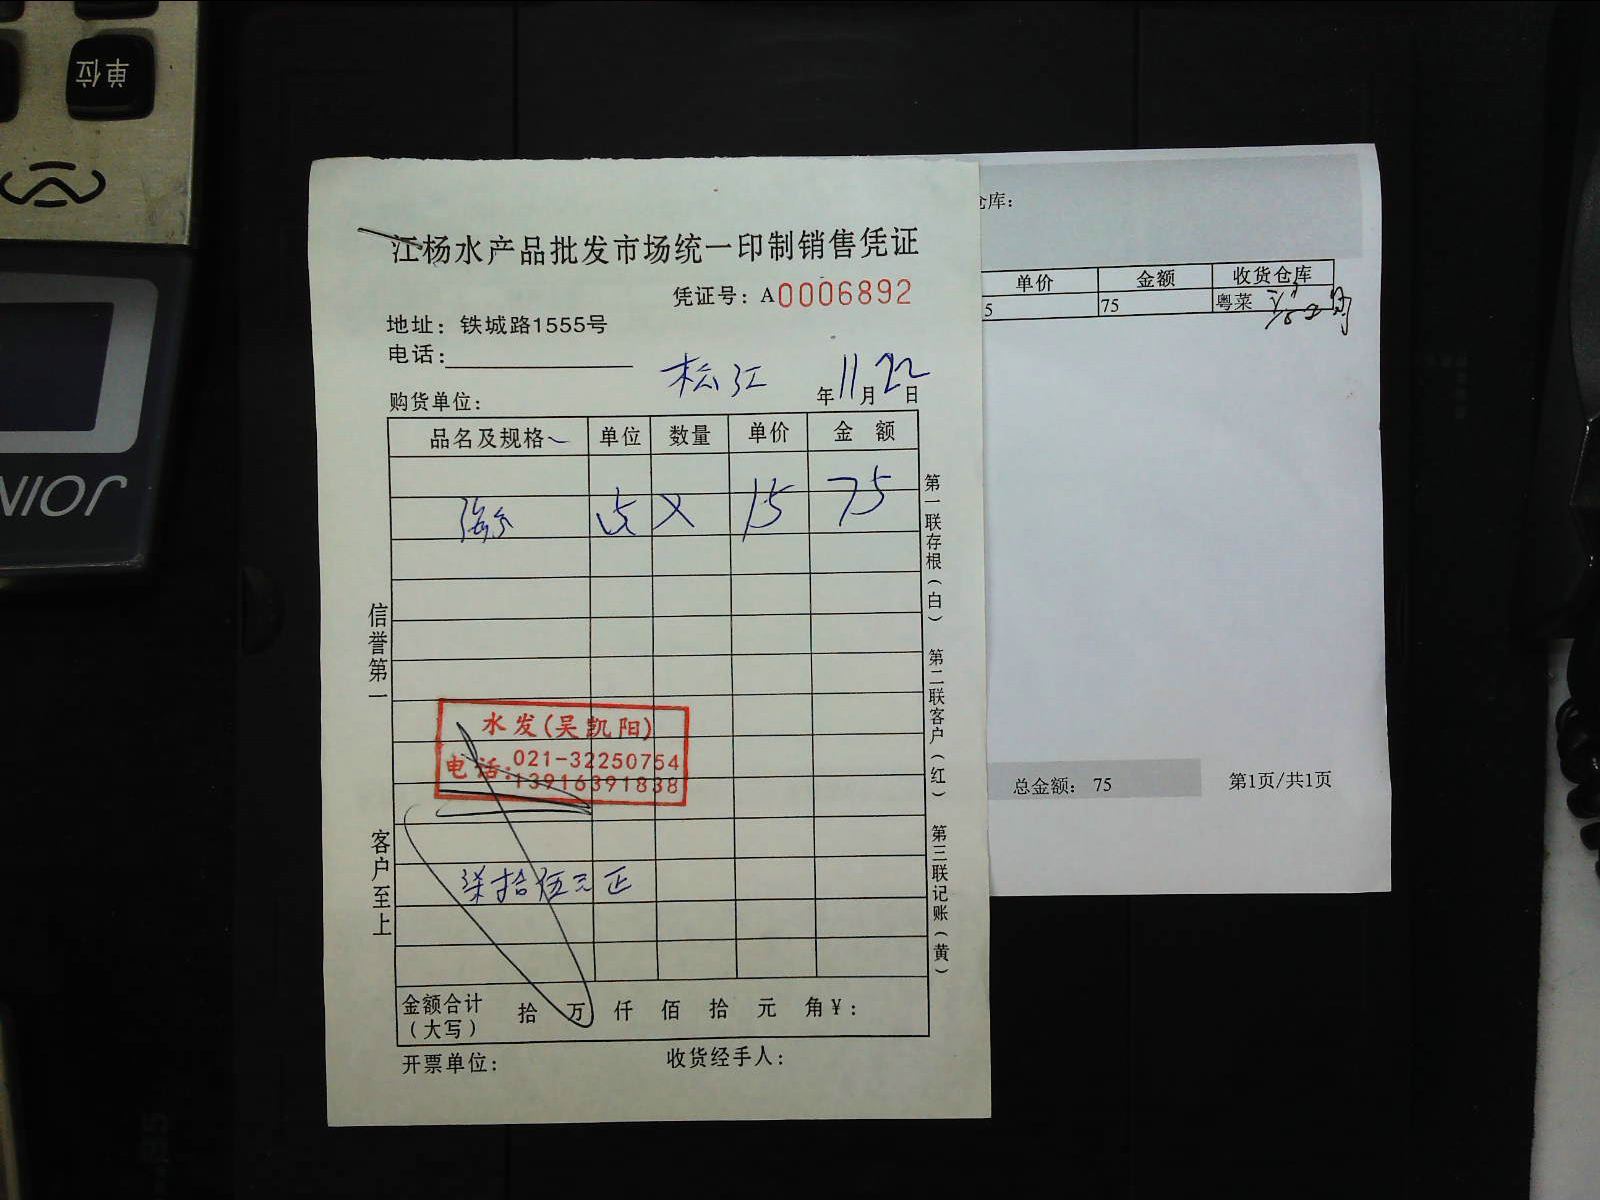 单位
JOINIOR
江杨水产品批发市场统一印制销售凭证
凭证号：A0006892
地址：铁城路1555号
电话：
松江
年11月22日
购货单位：
品名及规格 单位 数量 单价 金 额
15 75
信誉第一
客户至上
第一联存根（白） 第二联客户（红） 第三联记账（黄）
水发(吴凯阳)
电话:021-32250754
13916391838
柒拾伍元正
金额合计（大写） 拾 万 仟 佰 拾 元 角¥：
开票单位： 收货经手人：
仓库：
单价 金额 收货仓库
5 75 粤菜
总金额： 75 第1页/共1页